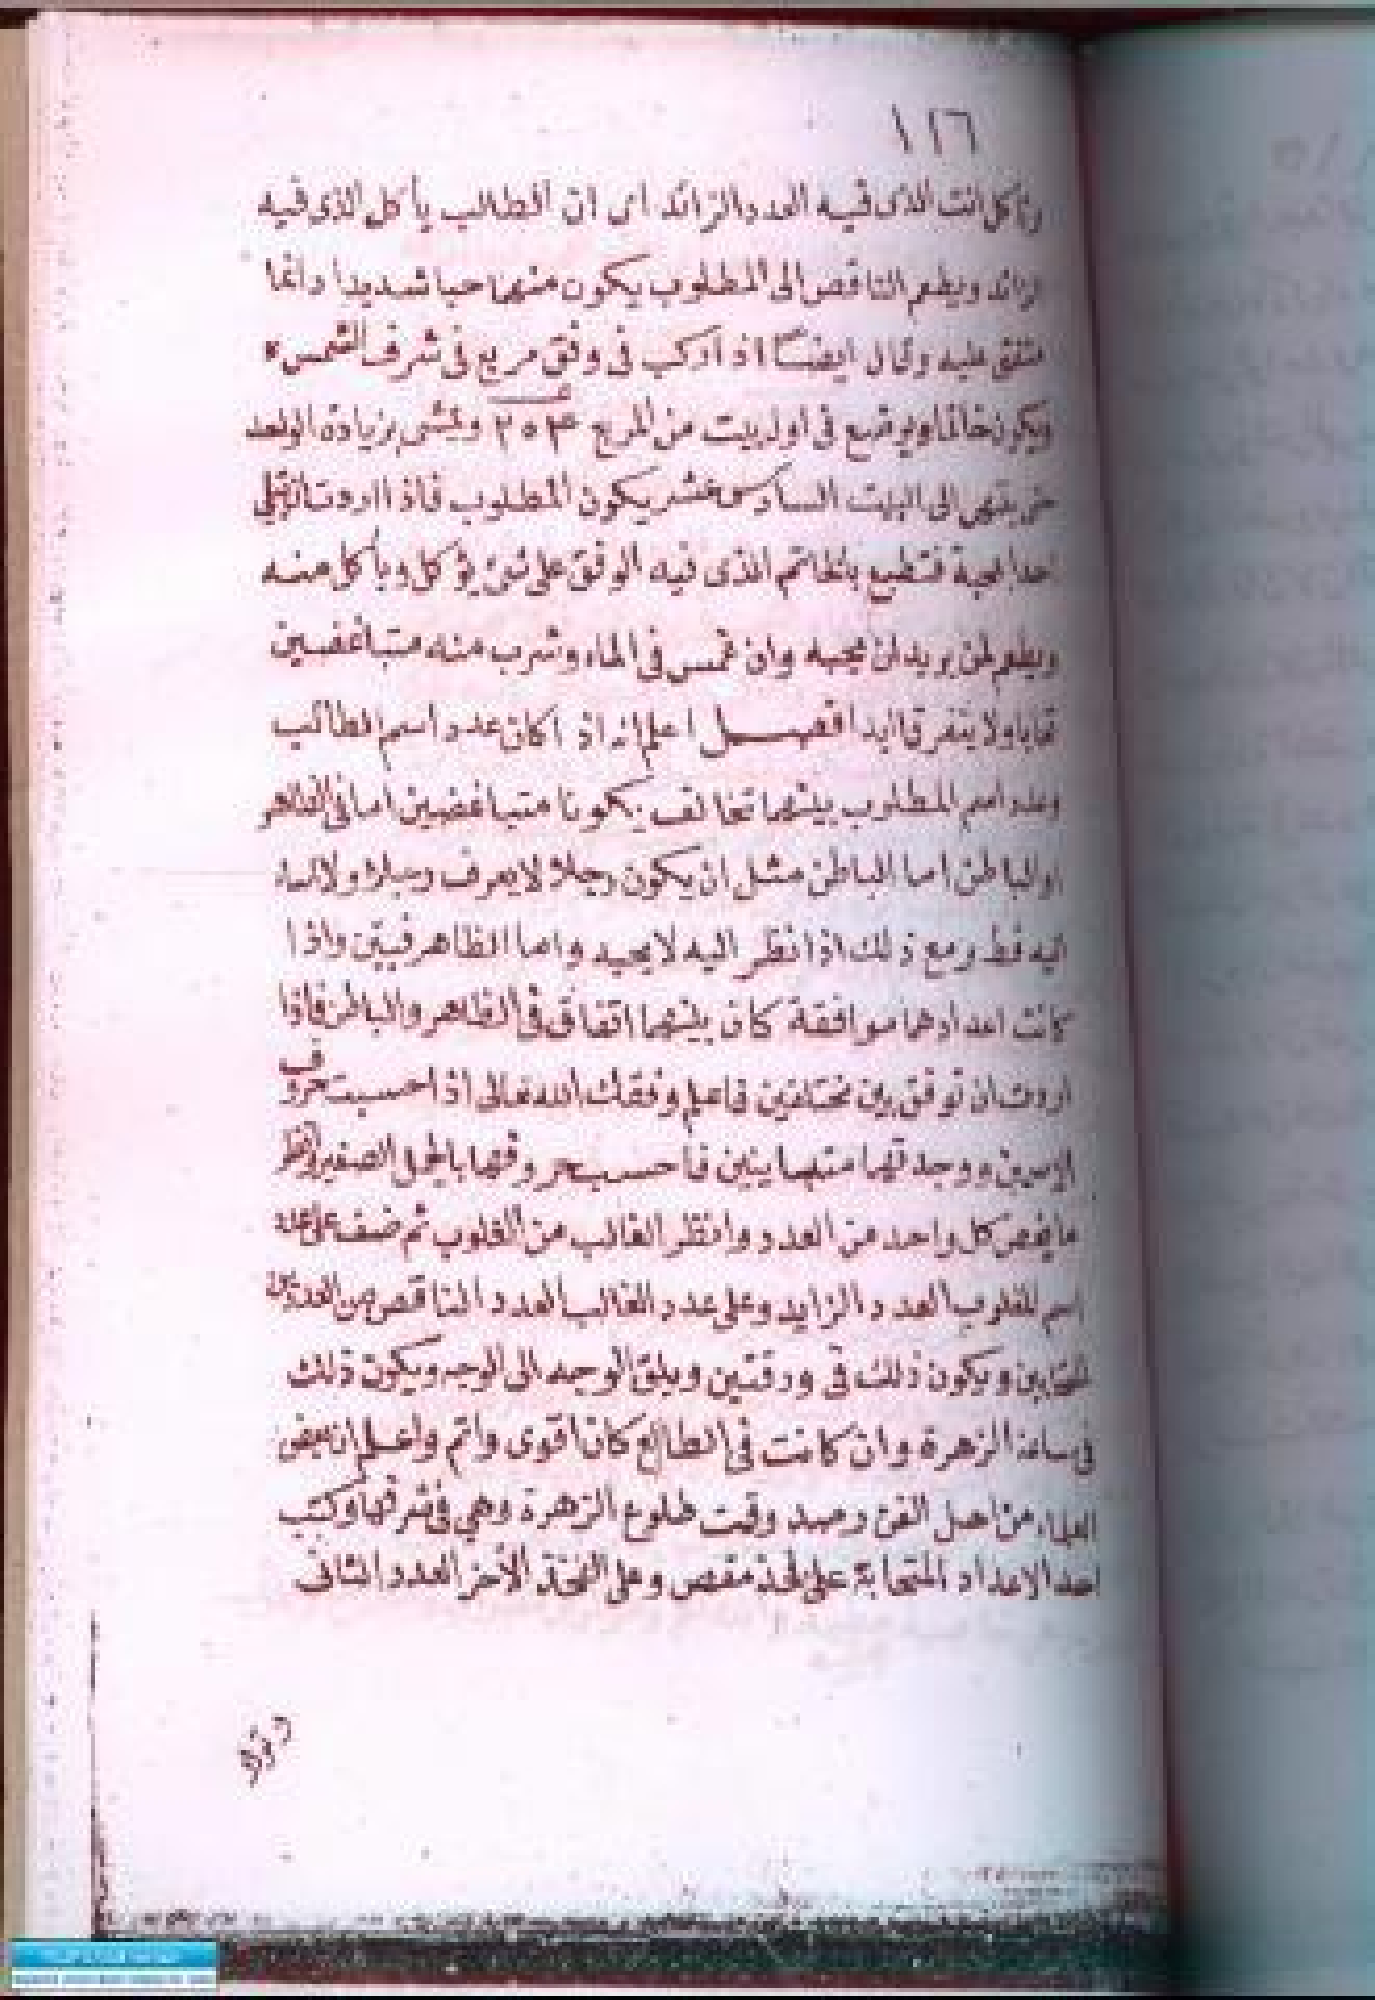 ١٢٦
وتأكل انت الذى فيه العدد الزائد اى ان الطالب يأكل الذى فيه
الزائد ويطعم الناقص الى المطلوب يكون منهما حبا شديدا دائما
متفق عليه وقال ايضا اذا ركب فى وفق مربع فى شرف الشمس
ويكون خاتما ويوضع فى اول بيت من المربع وتمشى بزيادة الواحد
حتى ينتهى الى البيت السادس عشر يكون المطلوب فاذا اردت
احدا لمحبة فتطبع بالخاتم الذى فيه الوفق على شئ يؤكل ويأكل منه
ويطعم لمن يريد ان يحبه وان غمس فى الماء وشرب منه متباغضين
تحابا ولا يتفرقا ابدا فصل اعلم انه اذا كان عدد اسم الطالب
وعدد اسم المطلوب بينهما تخالف يكونا متباغضين اما فى الظاهر
او الباطن اما الباطن مثل ان يكون رجلا لا يعرف رجلا ولا
اليه قط ومع ذلك اذا نظر اليه لا يحبه واما الظاهر فبين واذا
كانت اعدادهما موافقة كان بينهما اتفاق فى الظاهر والباطن فاذا
اردت ان توفق بين مختلفين فاعلم وفقك الله تعالى اذا حسبت حروف
الاسمين ووجدتهما متباينين فاحسب حروفهما بالجمل الصغير وانظر
ما يخص كل واحد من العدد وانظر الغالب من المغلوب ثم ضف على عدد
اسم المغلوب العدد الزايد وعلى عدد الغالب العدد الناقص من العددين
المتحابين ويكون ذلك فى ورقتين ويلق الوجه الى الوجه ويكون ذلك
فى ساعة الزهرة وان كانت فى الطالع كان اقوى واتم واعلم ان بعض
العلماء من اهل الفن رصد وقت طلوع الزهرة وهى فى شرفها وكتب
احد الاعداد المتحابة على فخذ مقص وعلى الفخذ الأخر العدد الثانى